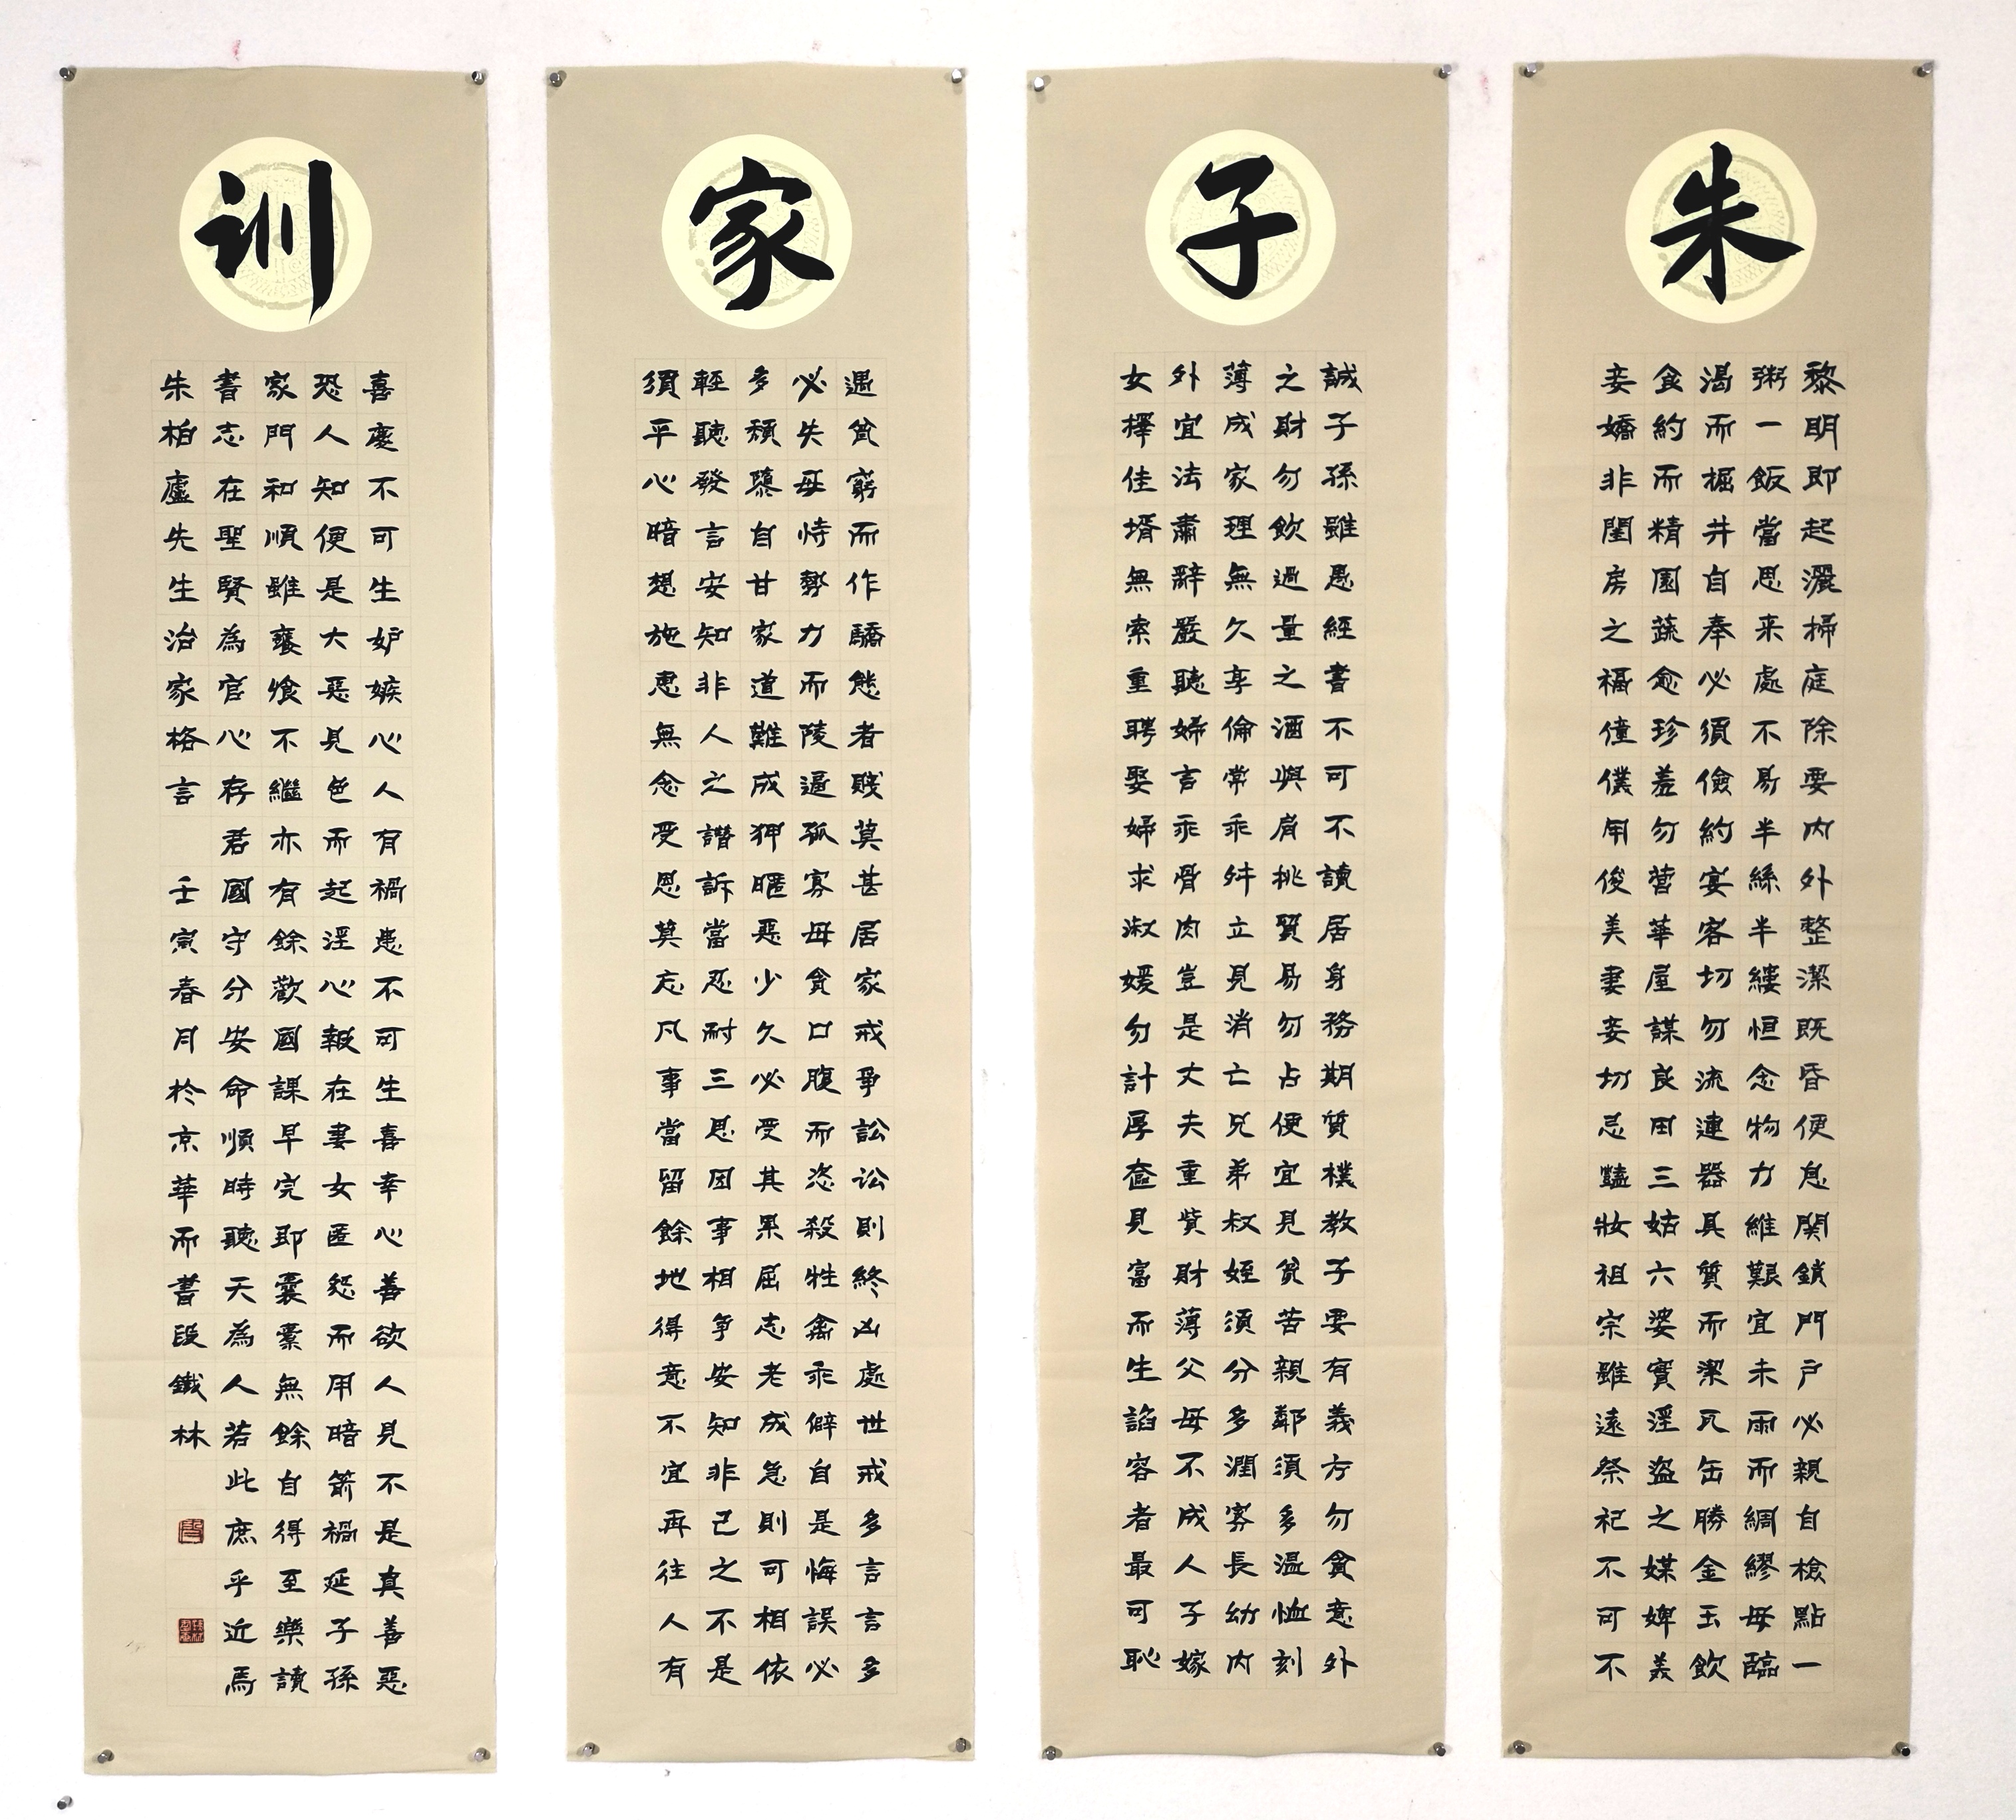 朱
黎明即起灑掃庭除要内外整潔既昏便息関鎖門戸必親自檢點一
粥一飯當思来處不易半絲半縷恒念物力維艱宜未雨而綢繆毋臨
渴而掘井自奉必須儉約宴客切勿流連器具質而潔瓦缶勝金玉飲
食約而精園蔬愈珍羞勿營華屋謀良田三姑六婆實淫盜之媒婢美
妾嬌非閨房之福僮僕用俊美妻妾切忌豔妝祖宗雖遠祭祀不可不
子
誠子孫雖愚經書不可不讀居身務期質樸教子要有義方勿貪意外
之財勿飲過量之酒與肩挑貿易勿占便宜見貧苦親鄰須多溫恤刻
薄成家理無久享倫常乖舛立見消亡兄弟叔姪須分多潤寡長幼内
外宜法肅辭嚴聽婦言乖骨肉豈是丈夫重貲財薄父母不成人子嫁
女擇佳壻無索重聘娶婦求淑媛勿計厚奩見富而生諂容者最可恥
家
遇貧窮而作驕態者賤莫甚居家戒爭訟訟則終凶處世戒多言言多
必失毋恃勢力而陵逼孤寡毋貪口腹而恣殺牲禽乖僻自是悔誤必
多頹隳自甘家道難成狎暱惡少久必受其累屈志老成急則可相依
輕聽發言安知非人之譖訴當忍耐三思因事相爭安知非己之不是
須平心暗想施恵無念受恩莫忘凡事當留餘地得意不宜再往人有
训
喜慶不可生妒嫉心人有禍患不可生喜幸心善欲人見不是真善惡
恐人知便是大惡見色而起淫心報在妻女匿怨而用暗箭禍延子孫
家門和順雖饔飧不繼亦有餘歡國課早完即囊橐無餘自得至樂讀
書志在聖賢為官心存君國守分安命順時聽天為人若此庶乎近焉
朱柏廬先生治家格言 壬寅春月於京華而書段鐵林